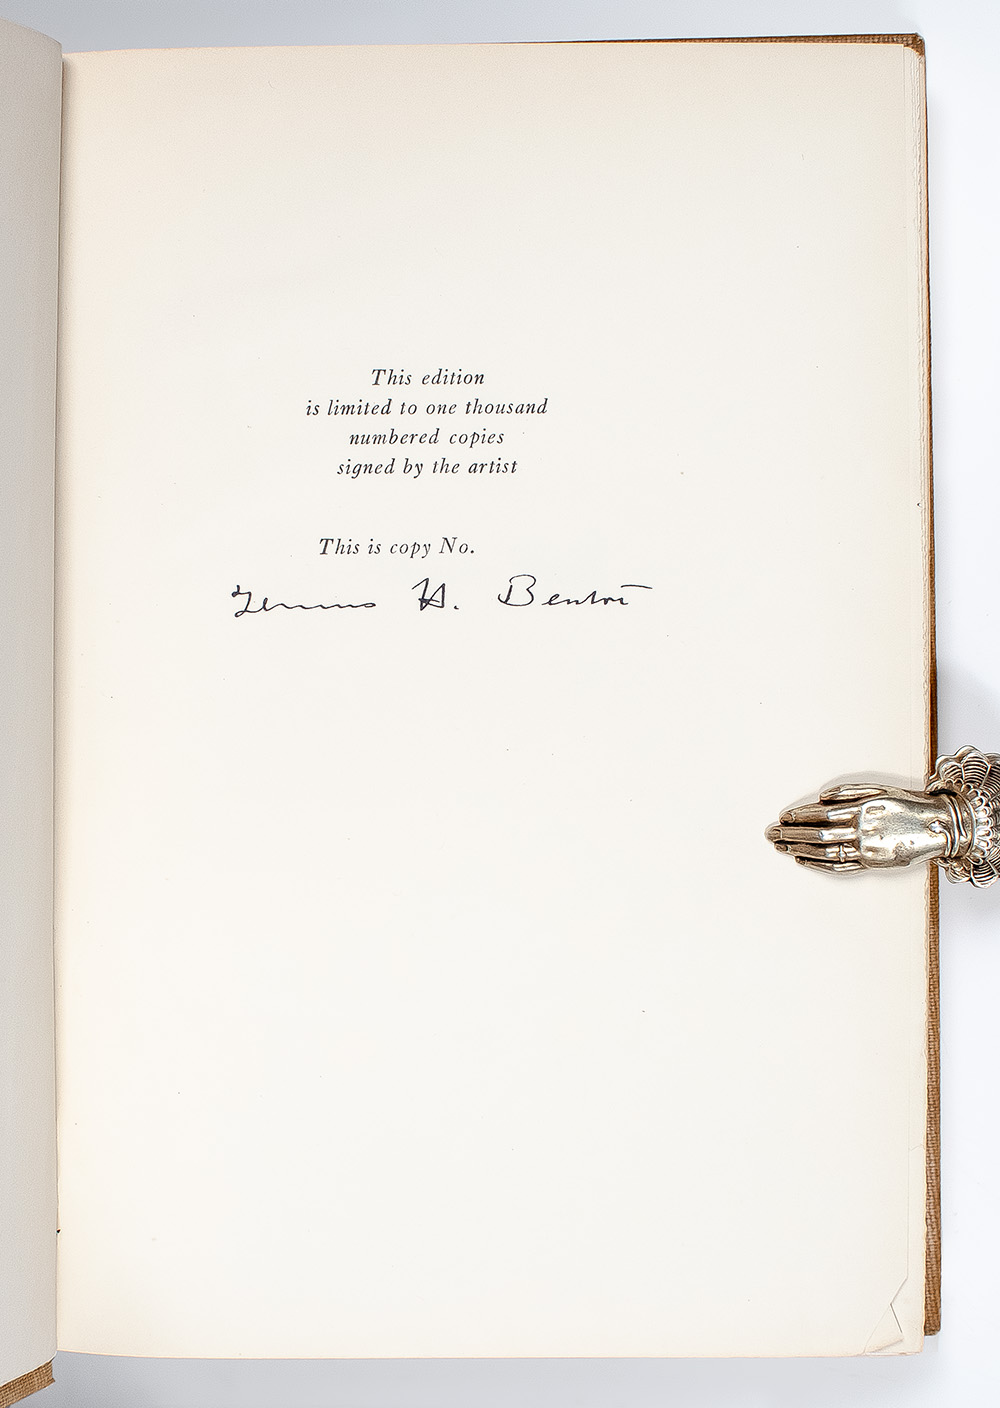 This edition
is limited to one thousand
numbered copies
signed by the artist
This is copy No.
Thomas H. Benton